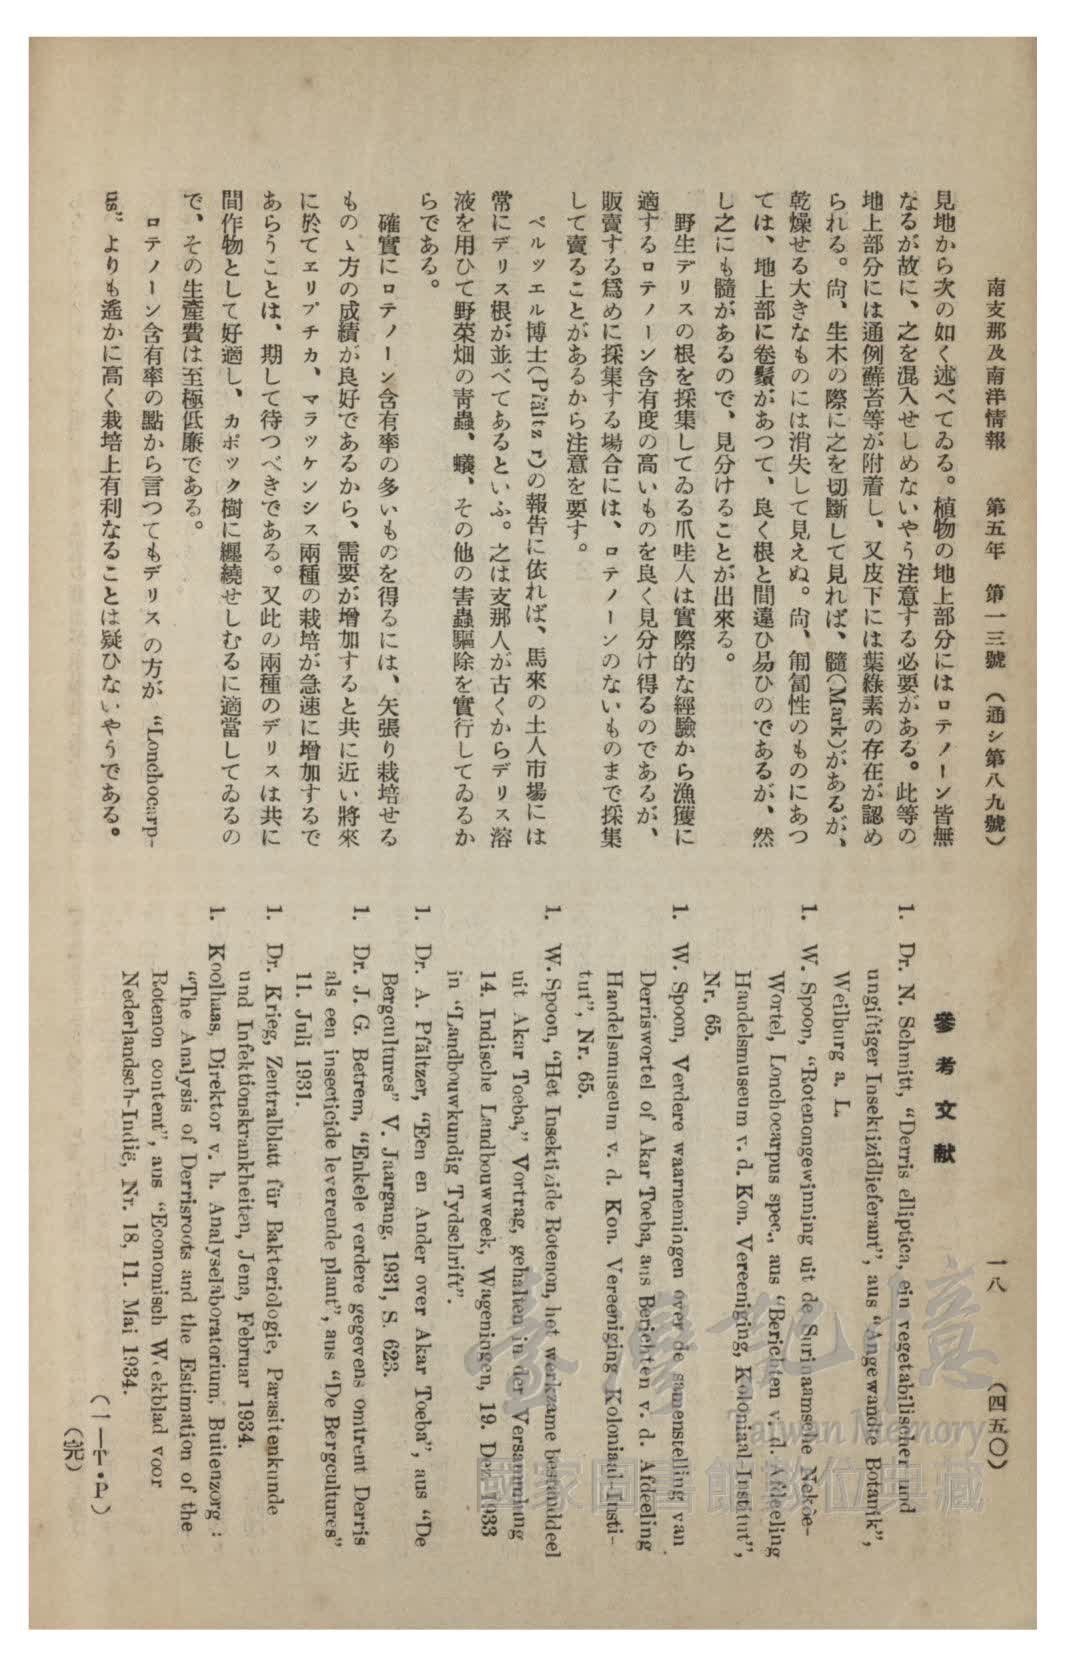 南支那及南洋情報　第五年　第一三號　（通シ第八九號）
一八　（四五〇）
見地から次の如く述べてゐる。植物の地上部分にはロテノーン皆無
なるが故に、之を混入せしめないやう注意する必要がある。此等の
地上部分には通例蘚苔等が附着し、又皮下には葉綠素の存在が認め
られる。尙、生木の際に之を切斷して見れば、髓(Mark)があるが、
乾燥せる大きなものには消失して見えぬ。尙、匍匐性のものにあつ
ては、地上部に卷鬚があつて、良く根と間違ひ易ひのであるが、然
し之にも髓があるので、見分けることが出來る。
野生デリスの根を採集してゐる爪哇人は實際的な經驗から漁獲に
適するロテノーン含有度の高いものを良く見分け得るのであるが、
販賣する爲めに採集する場合には、ロテノーンのないものまで採集
して賣ることがあるから注意を要す。
ペルツエル博士(Pfältz r)の報告に依れば、馬來の土人市場には
常にデリス根が並べてあるといふ。之は支那人が古くからデリス溶
液を用ひて野菜畑の靑蟲、蟻、その他の害蟲驅除を實行してゐるか
らである。
確實にロテノーン含有率の多いものを得るには、矢張り栽培せる
もの丶方の成績が良好であるから、需要が增加すると共に近い將來
に於てエリプチカ、マラッケンシス兩種の栽培が急速に增加するで
あらうことは、期して待つべきである。又此の兩種のデリスは共に
間作物として好適し、カポック樹に纒繞せしむるに適當してゐるの
で、その生產費は至極低廉である。
ロテノーン含有率の點から言つてもデリスの方が “Lonchocarp-
us” よりも遙かに高く栽培上有利なることは疑ひないやうである。
參考文献
1. Dr. N. Schmitt, “Derris elliptica, ein vegetabilischer und
ungiftiger Insektizidlieferant”, aus “Angewandte Botanik”,
Weilburg a. L.
1. W. Spoon, “Rotenongewinning uit de Surinaamsche Nekoe-
Wortel, Lonchocarpus spec., aus “Berichten v. d. Afdeeling
Handelsmuseum v. d. Kon. Vereeniging, Koloniaal-Institut”,
Nr. 65.
1. W. Spoon, Verdere waarnemingen over de samenstelling van
Derriswortel of Akar Toeba, aus Berichten v. d. Afdeeling
Handelsmuseum v. d. Kon. Vereeniging Koloniaal-Insti-
tut”, Nr. 65.
1. W. Spoon, “Het Insektizide Rotenon, het werkzame bestanddeel
uit Akar Toeba,” Vortrag, gehalten in der Versammlung
14. Indische Landbouwweek, Wageningen, 19. Dez. 1933
in “Landbouwkundig Tydschrift”.
1. Dr. A. Pfältzer, “Een en Ander over Akar Toeba”, aus “De
Bergcultures” V. Jaargang, 1931, S. 623.
1. Dr. J. G. Betrem, “Enkele verdere gegevens omtrent Derris
als een insecticide leverende plant”, aus “De Bergcultures”
11. Juli 1931.
1. Dr. Krieg, Zentralblatt für Bakteriologie, Parasitenkunde
und Infektionskrankheiten, Jena, Februar 1934.
1. Koolhaas, Direktor v. h. Analyselaboratorium, Buitenzorg :
“The Analysis of Derrisroots and the Estimation of the
Rotenon content”, aus “Economisch Weekblad voor
Nederlandsch-Indië, Nr. 18, 11. Mai 1934.
（訳）
臺灣記憶
Taiwan Memory
國家圖書館數位典藏